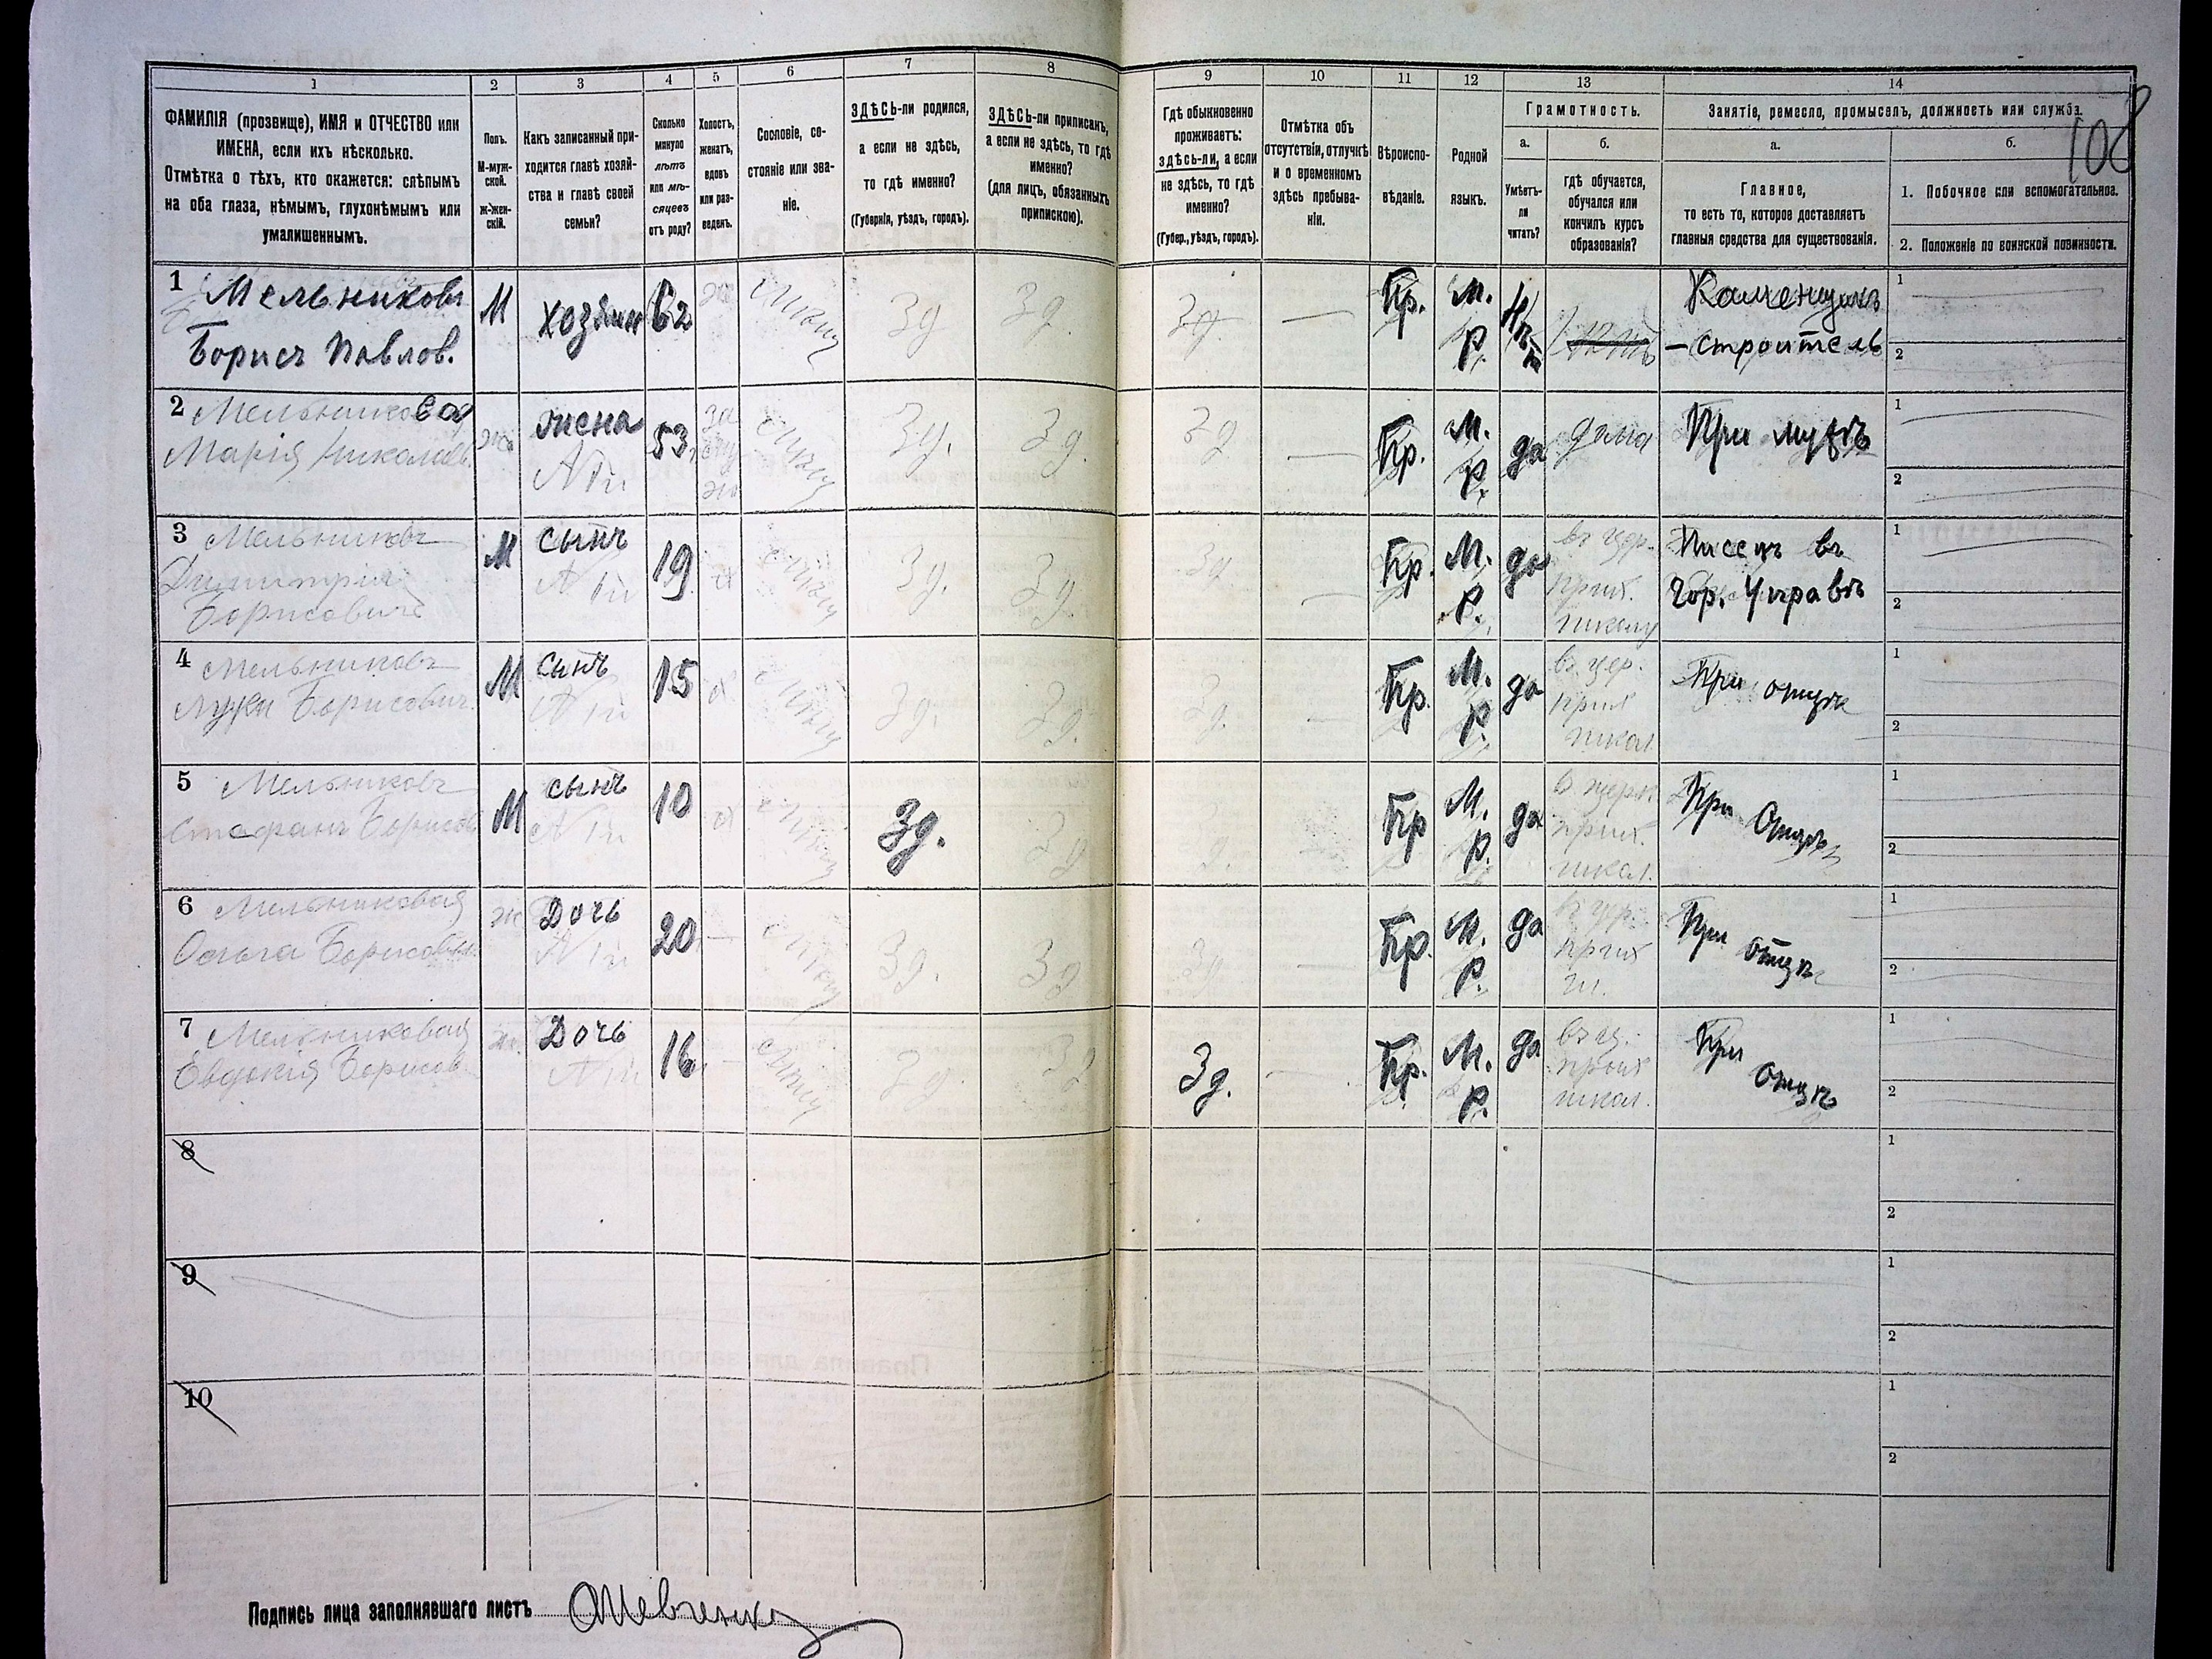 1
2
3
4
5
6
7
8
9
10
11
12
13
14
108
ФАМИЛІЯ (прозвище), ИМЯ и ОТЧЕСТВО или
ИМЕНА, если ихъ нѣсколько.
Отмѣтка о тѣхъ, кто окажется: слѣпымъ
на оба глаза, нѣмымъ, глухонѣмымъ или
умалишеннымъ.
Полъ.
М-муж-
ской.
ж-жен-
скій.
Какъ записанный при-
ходится главѣ хозяй-
ства и главѣ своей
семьи?
Сколько
минуло
лѣтъ
или мѣ-
сяцевъ
отъ роду?
Холостъ,
женатъ,
вдовъ
или раз-
веденъ.
Сословіе, со-
стояніе или зва-
ніе.
ЗДѢСЬ-ли родился,
а если не здѣсь,
то гдѣ именно?
(Губернія, уѣздъ, городъ).
ЗДѢСЬ-ли приписанъ,
а если не здѣсь, то гдѣ
именно?
(для лицъ, обязанныхъ
припискою).
Гдѣ обыкновенно
проживаетъ:
здѣсь-ли, а если
не здѣсь, то гдѣ
именно?
(Губер., уѣздъ, городъ).
Отмѣтка объ
отсутствіи, отлучкѣ
и о временномъ
здѣсь пребыва-
ніи.
Вѣроиспо-
вѣданіе.
Родной
языкъ.
Грамотность.
а.
Умѣетъ-
ли
читать?
б.
гдѣ обучается,
обучался или
кончилъ курсъ
образованія?
Занятіе, ремесло, промыселъ, должность или служба.
а.
Главное,
то есть то, которое доставляетъ
главныя средства для существованія.
б.
1. Побочное или вспомогательное.
2. Положеніе по воинской повинности.
1 Мельниковъ
Борисъ Павлов.
М
хозяин
62
Зд
Зд.
Зд.
Кр.
М.
Р.
Нѣт
Каменщикъ
— строитель
1
2
2 Мельниковая
Марія Николаев.
ж
жена
53
Зд.
Зд.
Зд
Кр.
М.
Р.
да
дома
При мужѣ
1
2
3 Мельниковъ
Димитрій
Борисовичъ
М
сынъ
19
х
Зд.
Зд.
Зд
Кр.
М.
Р.
да
въ цер.
прих.
школу
Писецъ въ
Гор. Управѣ
1
2
4 Мельниковъ
Лука Борисович.
М
сынъ
15
х
Зд.
Зд.
Зд.
Кр.
М.
Р.
да
въ цер.
прих
школ.
При отцѣ
1
2
5 Мельниковъ
Стефанъ Борисов
М
сынъ
10
х
Зд.
Зд
Кр
М.
Р.
да
в церк.
прих.
школ.
При Отцѣ
1
2
6 Мельниковая
Ольга Борисовн.
ж
Дочь
20
Зд.
Зд
Зд
Кр.
М.
Р.
да
въ цер.
прих
ш.
При отцѣ
1
2
7 Мельниковая
Евдокія Борисов.
ж.
Дочь
16
Зд
Зд
Зд.
Кр.
М.
Р.
да
въ ц.
прих
школ.
При отцѣ
1
2
8
1
2
9
1
2
10
1
2
Подпись лица заполнявшаго листъ
Шевченко